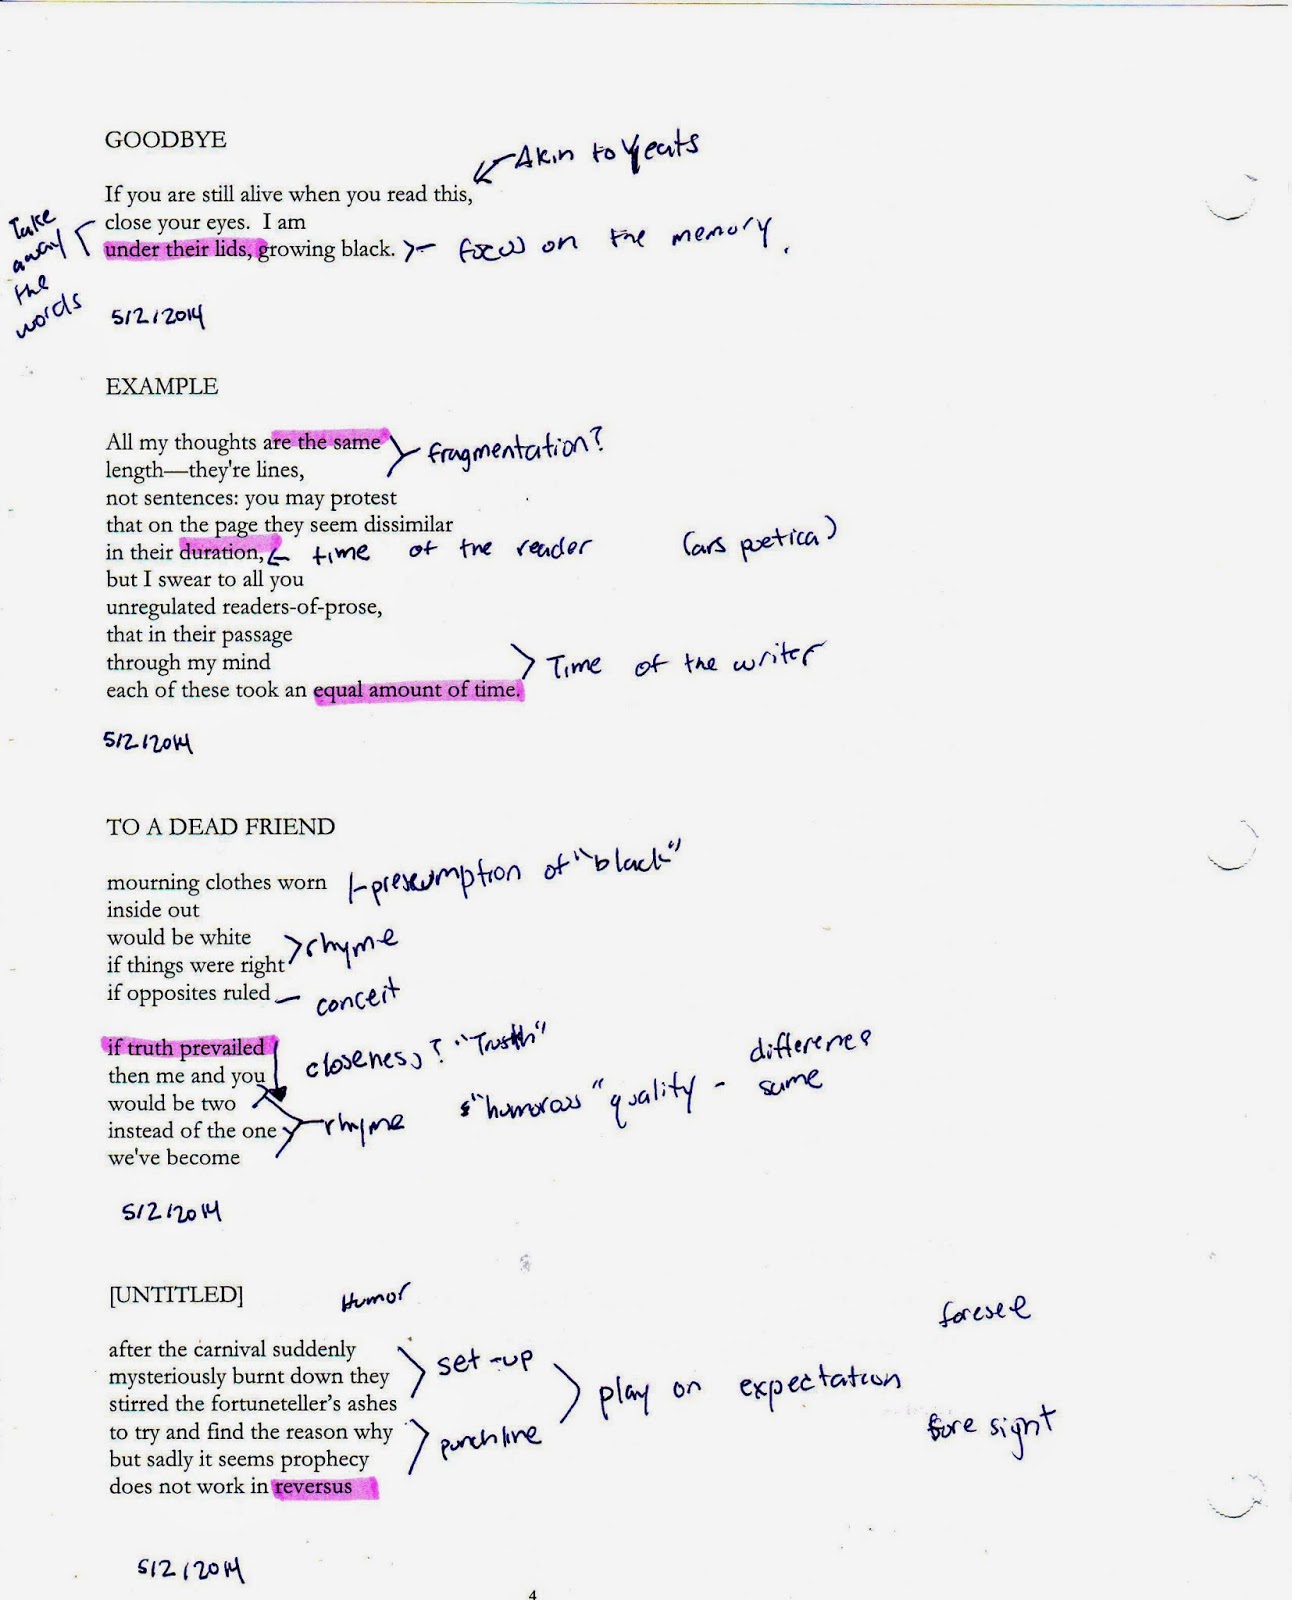 GOODBYE
Akin to Yeats
If you are still alive when you read this,
close your eyes.  I am
under their lids, growing black.
focus on the memory.
Take
away
the
words
5/2/2014
EXAMPLE
All my thoughts are the same
length—they're lines,
fragmentation?
not sentences: you may protest
that on the page they seem dissimilar
in their duration,
time of the reader
(ars poetica)
but I swear to all you
unregulated readers-of-prose,
that in their passage
through my mind
each of these took an equal amount of time.
Time of the writer
5/2/2014
TO A DEAD FRIEND
mourning clothes worn
presumption of "black"
inside out
would be white
if things were right
rhyme
if opposites ruled
conceit
if truth prevailed
closeness? "Truth"
then me and you
would be two
instead of the one
we've become
rhyme
"humorous" quality -
difference
same
5/2/2014
[UNTITLED]
Humor
after the carnival suddenly
mysteriously burnt down they
stirred the fortuneteller's ashes
set-up
to try and find the reason why
but sadly it seems prophecy
does not work in reversus
punchline
play on expectation
foresee
fore sight
5/2/2014
4